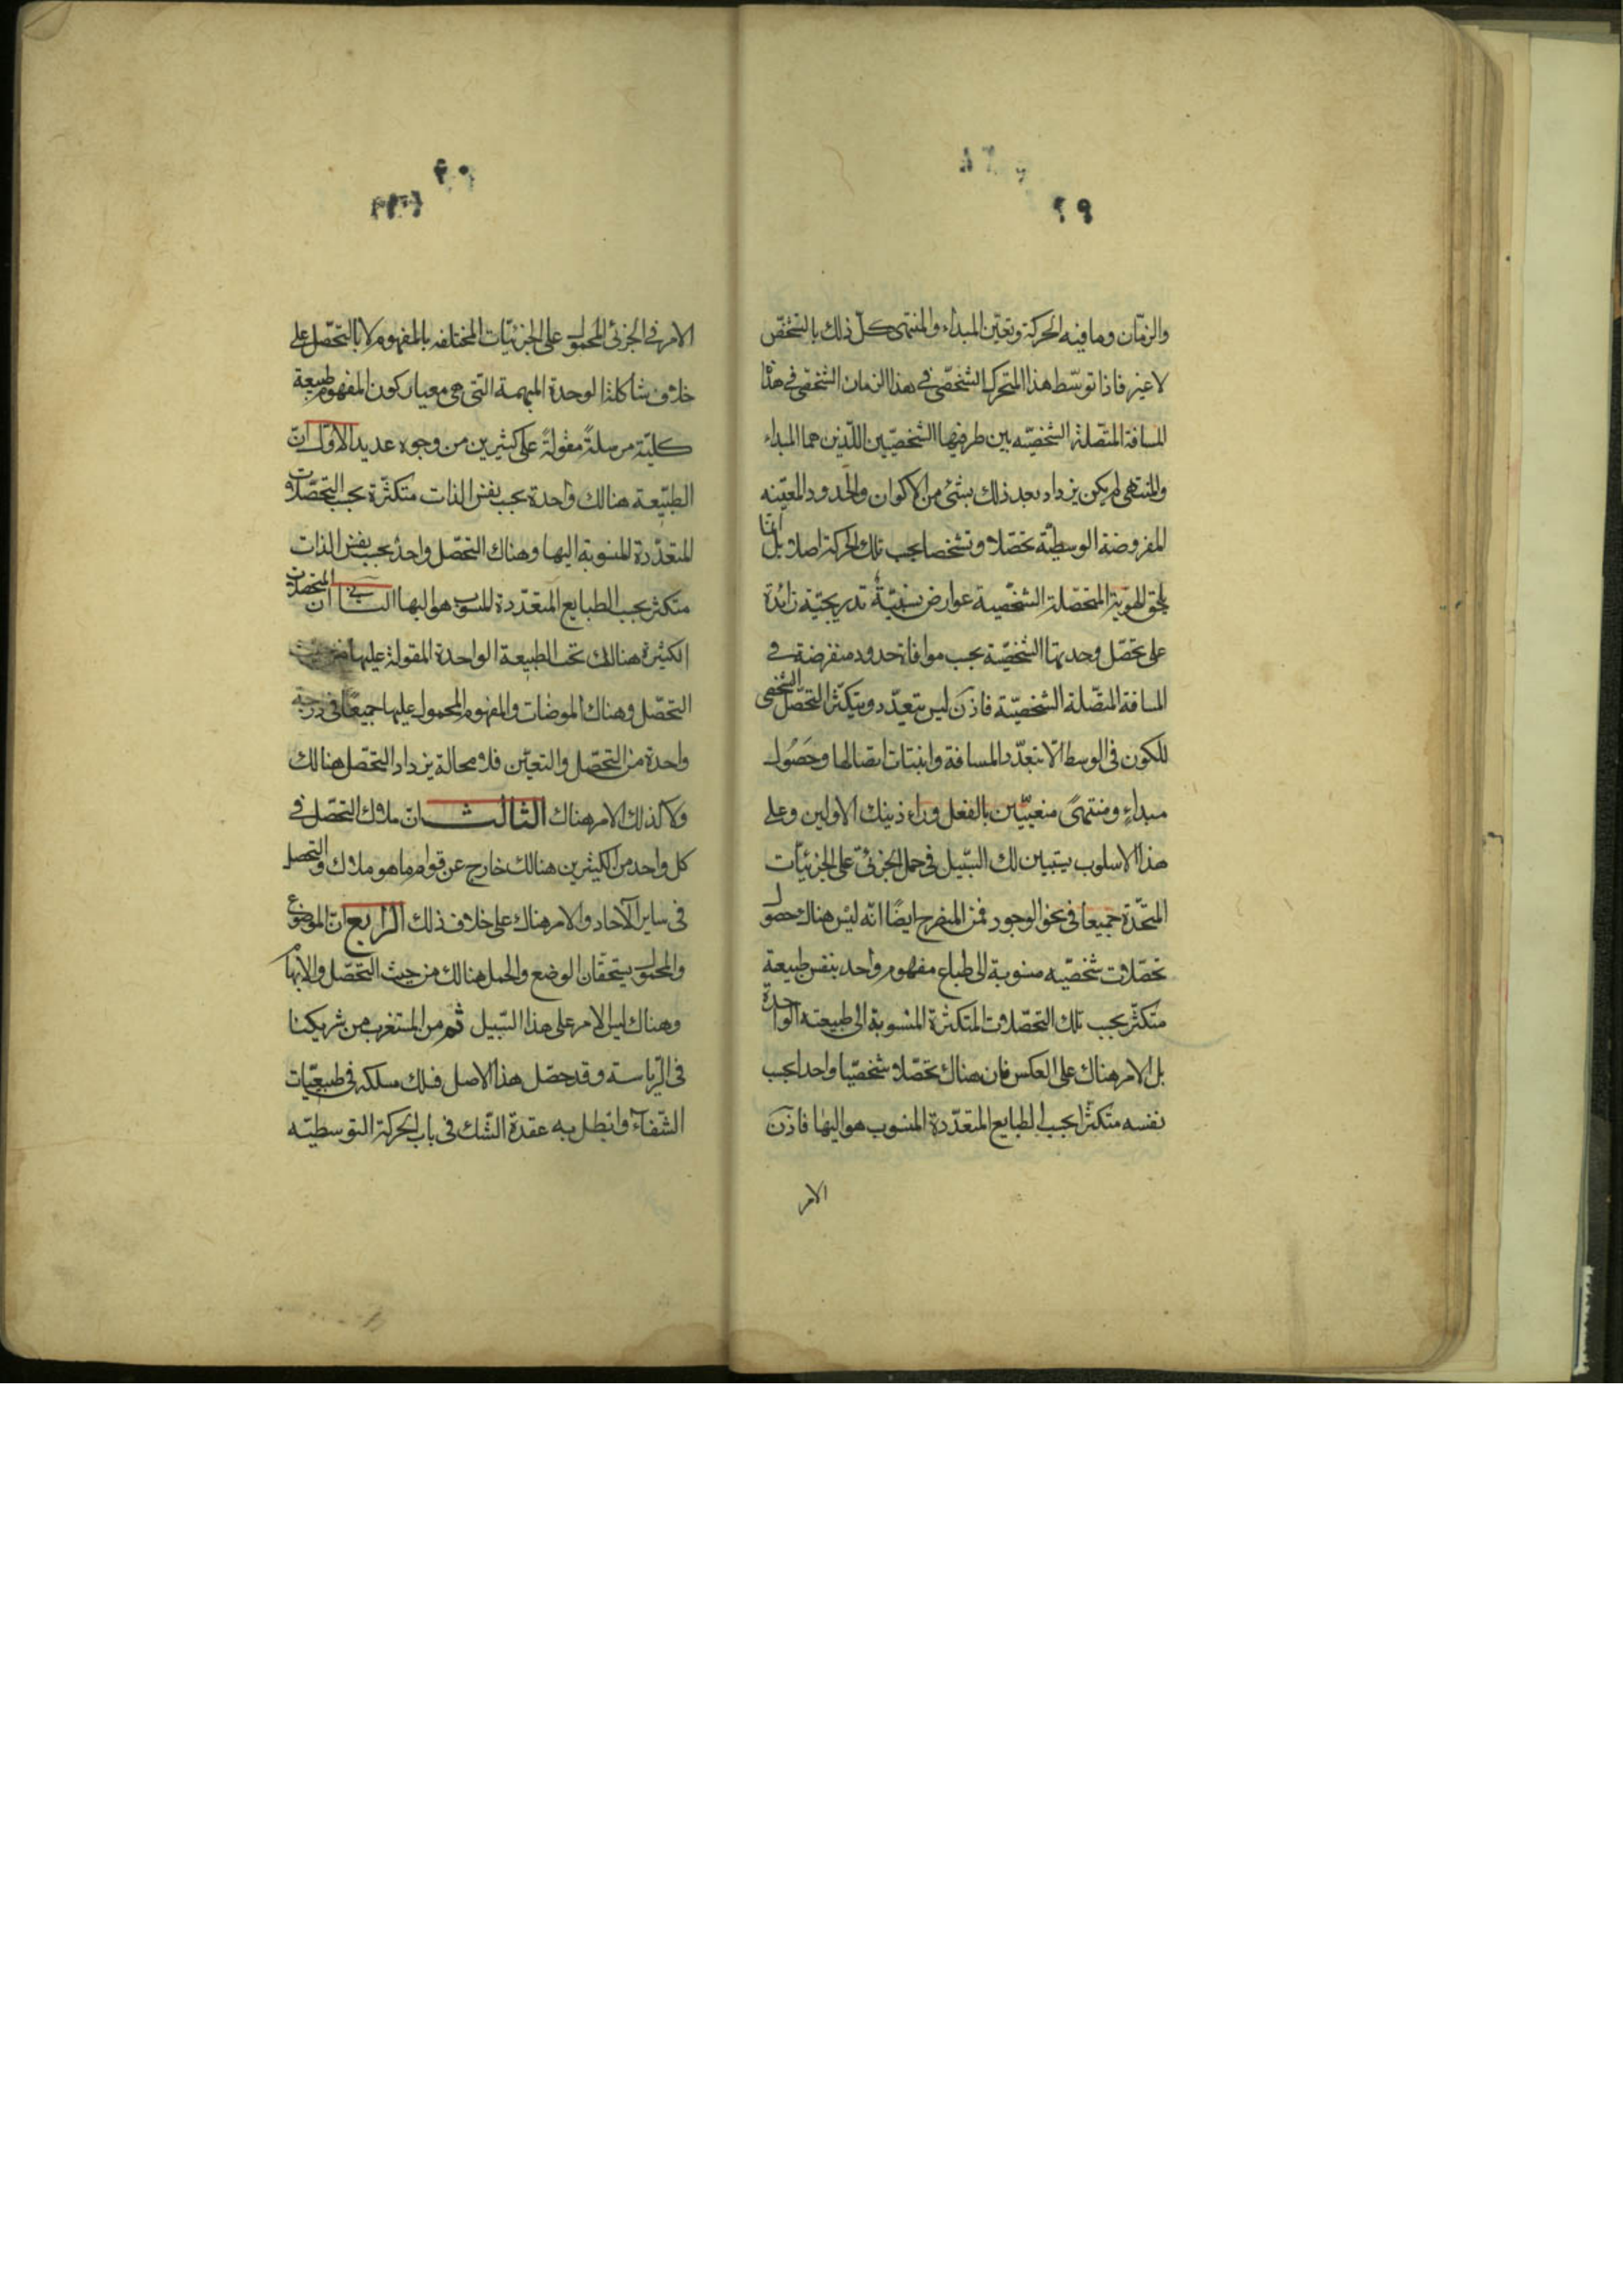 ٩٢
والزمان وما فيه الحركة وتعيّن المبداء والمنتهى كلّ ذلك بالتشخّص
لا غير فاذا توسّط هذا المتحرك الشخصّى فى هذا الزمان الشخصى فى هذا
المسافة المتّصلة الشخصيّه بين طرفيها الشخصيّين اللّذين هما المبداء
والمنتهى لم يكن يزداد بعد ذلك بشئ من الاكوان والحدود المعيّنه
المفروضة الوسطيّة تحصّلا وتشخصا بحسب تلك الحركة اصلا بل انّما
يلحق الهويّة المتحصّلة الشخصّية عوارض نسبيّة تدريجيّة زائدة
على تحصّل وحدتها الشخصيّة بحسب موافاة حدود منفرضة فى
المسافة المتصّلة الشخصيّة فاذن ليس يتعدّد ويتكثّر التحصّل الشخصى
للكون فى الوسط الّا بتعدّد المسافة وانبتات اتصالها وحصول
مبداءٍ ومنتهىً متعيّنين بالفعل وراء ذينك الاولين وعلى
هذا الاسلوب يستبين لك السّبيل فى حمل الجزئىّ على الجزئيّات
المتحّدة جميعا فى نحو الوجود فمن المنصرح ايضًا انّه ليس هناك حصول
تحصّلات شخصّيه منسوبة الى طباع مفهوم واحد بنفس طبيعة
متكثّر بحسب تلك التحصّلات المتكثرة المنسوبة الى طبيعته الواحدة
بل الامر هناك على العكس فان هناك تحصّلا شخصّيا واحدا بحسب
نفسه متكثّرا بحسب الطبايع المتعدّدة المنسوب هو اليها فاذن
الامر
الامر فى الجزئى المحمول على الجزئيّات المختلفه بالمفهوم لا بالتحصّل على
خلاف شاكلة الوحدة المبهمة التى هى معيار كون المفهوم طبيعة
كليّة مرسلةً مقولةً على كثيرين من وجوه عديد الاوّل انّ
الطبيّعة هنالك واحدة بحسب نفس الذات متكثّرة بحسب التحصّلات
المتعدّدة المنسوبة اليها وهناك التحصّل واحد بحسب نفس الذات
متكثر بحسب الطبايع المتعدّدة المنسوب هو اليها الثانى ان المتحصلات
الكثيرة هنالك تحت الطبيعة الواحدة المقولة عليها
التحصّل وهناك الموضات والمفهوم المحمول عليها جميعًا فى درجة
واحدة من التحصّل والتعيّن فلا محالة يزداد التحصّل هنالك
ولا كذلك الامر هناك الثالث انّ ملاك التحصّل فى
كل واحد من الكثيرين هنالك خارج عن قوام ما هو ملاك التحصل
فى ساير الآحاد والامر هناك على خلاف ذلك الرابع انّ الموضوع
والمحمول يستحقان الوضع والحمل هنالك من حيث التحصّل والابهام
وهناك ليس الامر على هذا السّبيل ثم من المستغرب من شريكنا
فى الرّياسة وقد حصّل هذا الاصل فسلك مسلكه فى طبيعيّات
الشّفاء وابطل به عقدة الشّك فى باب الحركة التوسطيّه